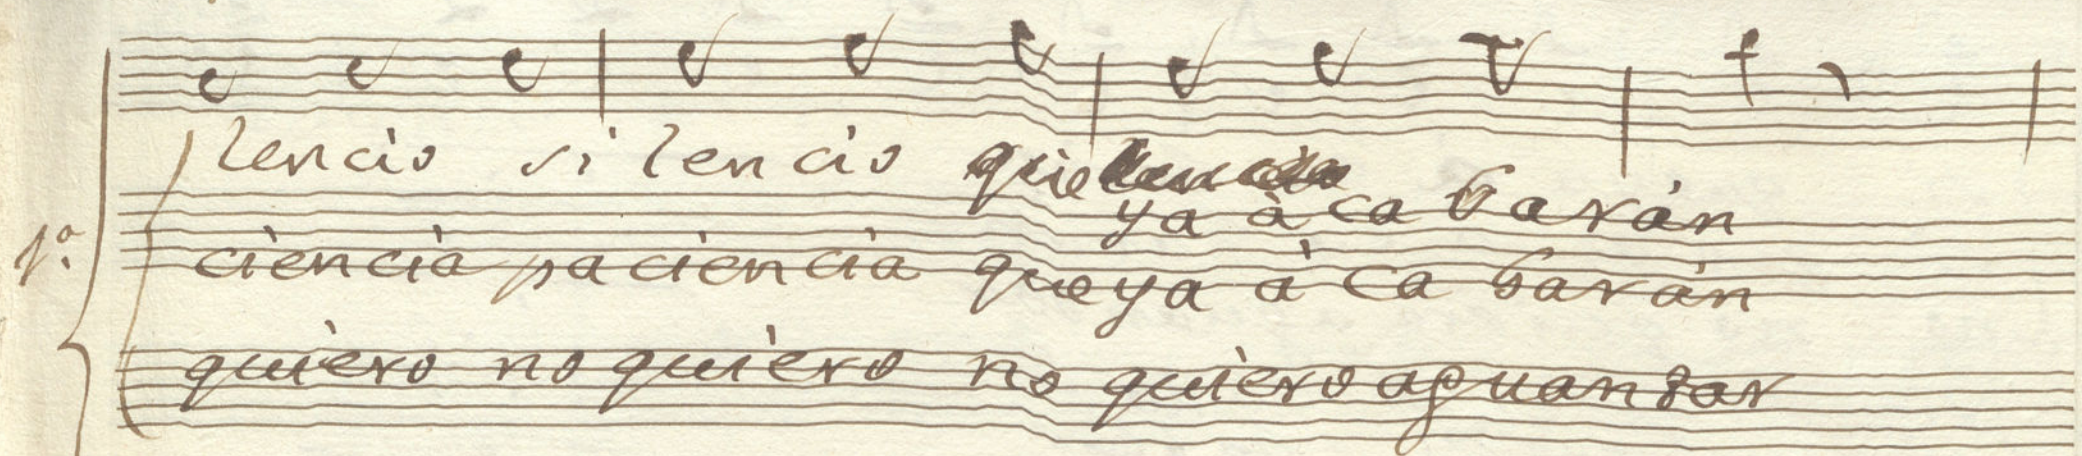 lencio si lencio que
ya à ca barán
1º.
ciencia pa ciencia que ya à ca barán
quiero no quiero no quiero aguantar